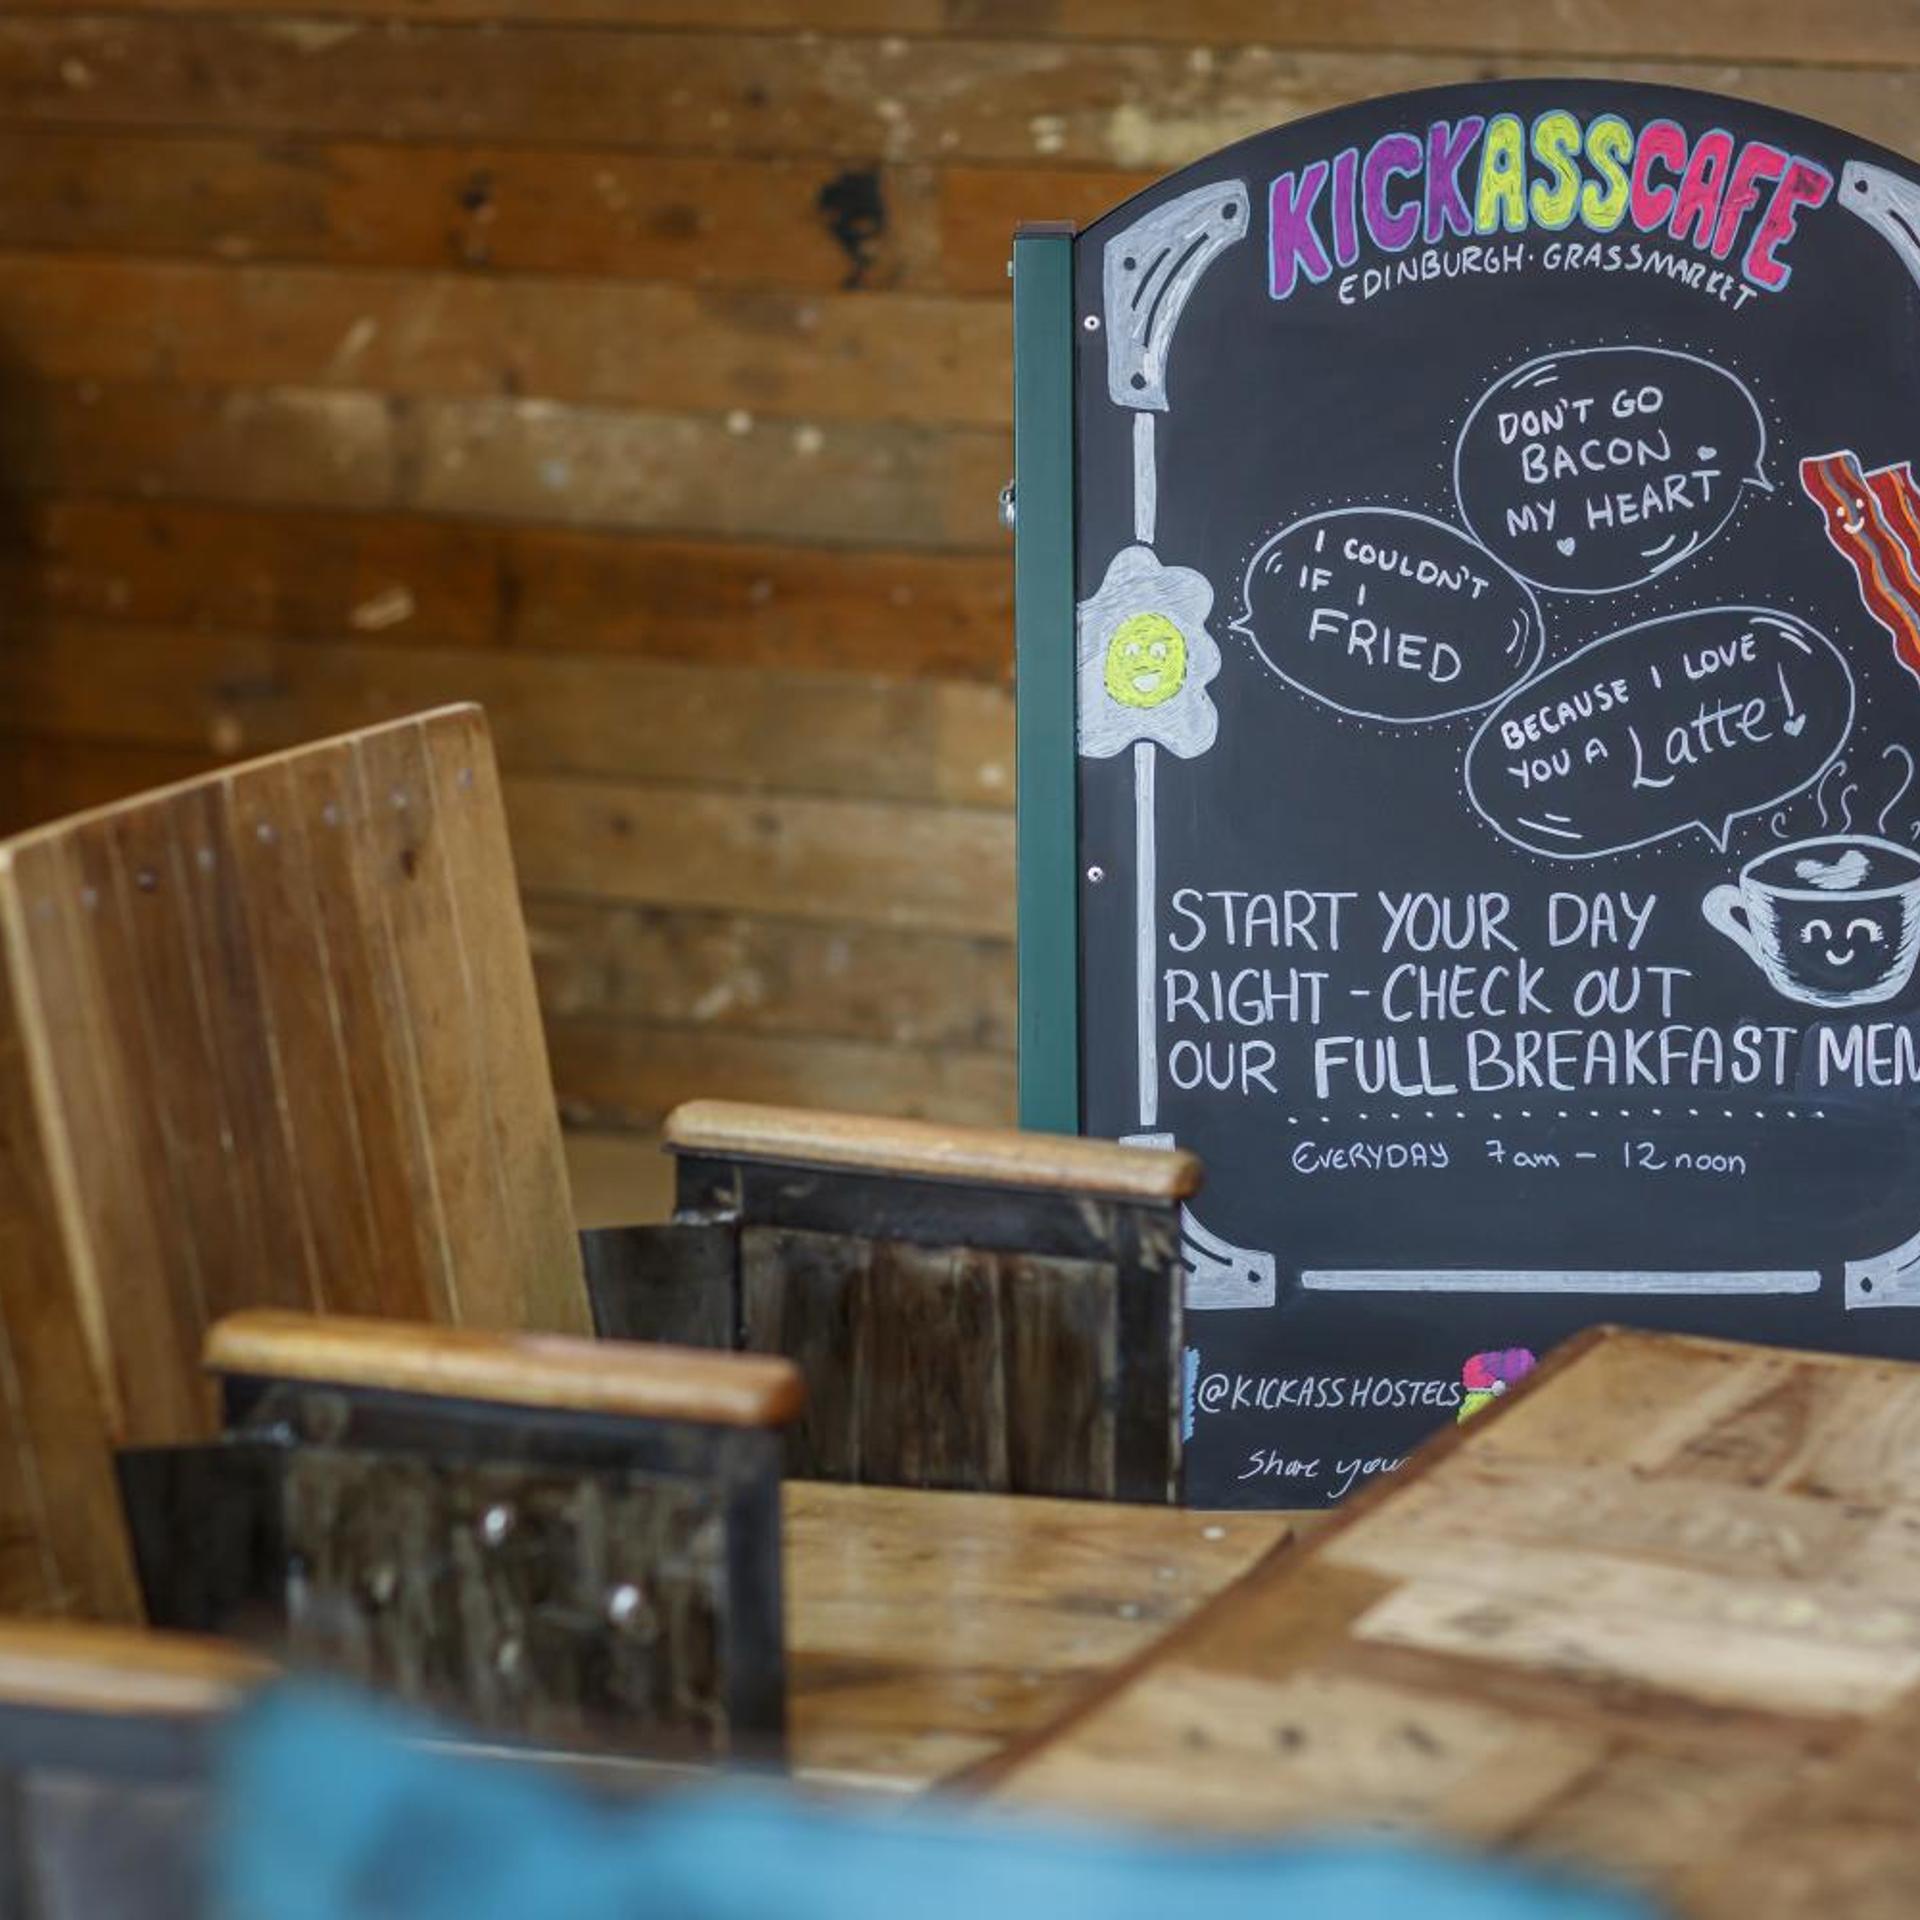 KICKASSCAFE
EDINBURGH · GRASSMARKET
DON'T GO
BACON
MY HEART
I COULDN'T
IF I
FRIED
BECAUSE I LOVE
YOU A Latte!
START YOUR DAY
RIGHT - CHECK OUT
OUR FULL BREAKFAST MEN
EVERYDAY 7am - 12 noon
@KICKASSHOSTELS
Share your